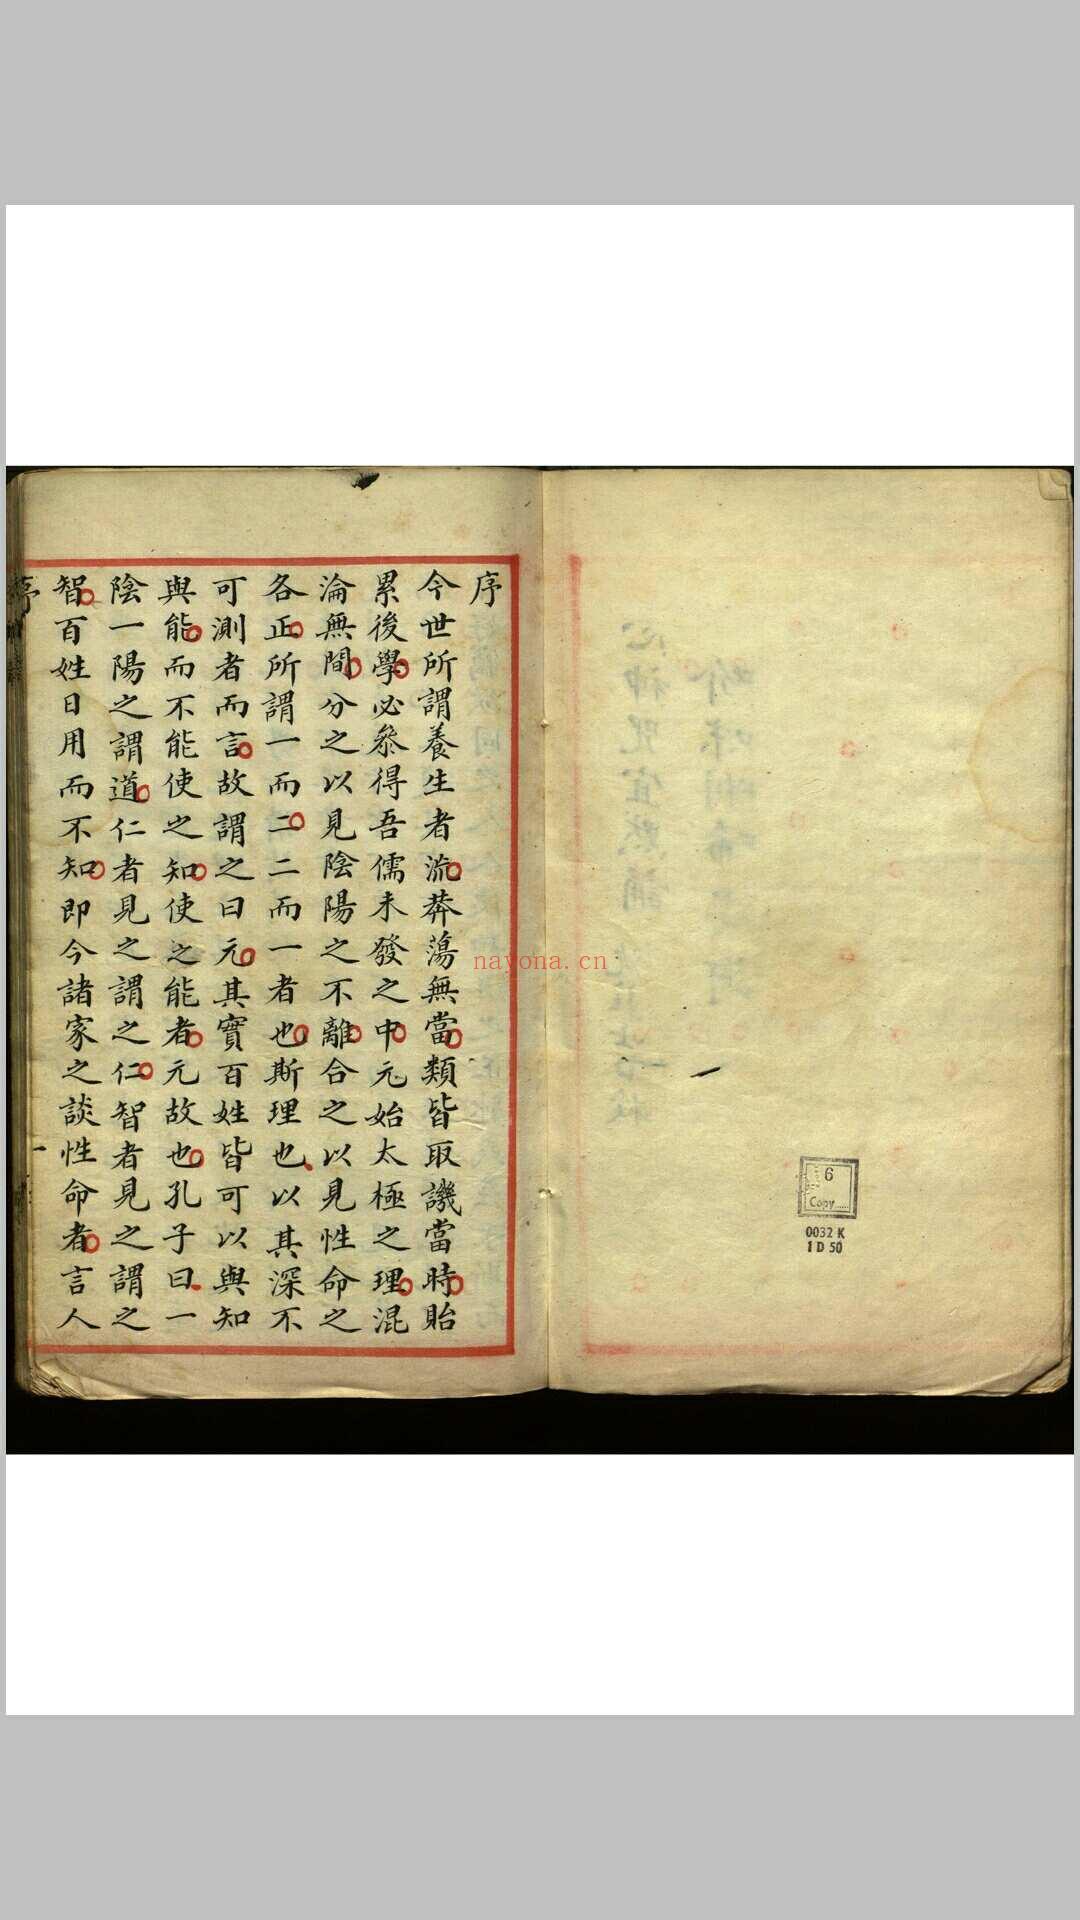 序
今世所謂養生者流莽蕩無當類皆取譏當時貽
累後學必叅得吾儒未發之中元始太極之理混
淪無間分之以見陰陽之不離合之以見性命之
各正所謂一而二二而一者也斯理也以其深不
可測者而言故謂之曰元其實百姓皆可以與知
與能而不能使之知使之能者元故也孔子曰一
陰一陽之謂道仁者見之謂之仁智者見之謂之
智百姓日用而不知即今諸家之談性命者言人
序
nayona.cn
6
Copy
0032 K
1 D 50